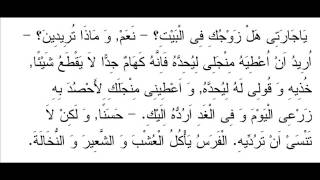 يَاجَارَتِى هَلْ زَوْجُكِ فِى الْبَيْتِ؟ – نَعَمْ, وَ مَاذَا تُرِيدِينَ؟ –
اُرِيدُ اَنْ اُعْطِيَهُ مِنْجَلِى لِيُحِدَّهُ فَاِنَّهُ كَهَامٌ جِدًّا لَا يَقْطَعُ شَيْئًا,
خُذِيهِ وَ قُولِى لَهُ لِيُحِدَّهُ, وَ اَعْطِينِى مِنْجَلَكِ لِأَحْصُدَ بِهِ
زَرْعِى الْيَوْمَ وَ فِى الْغَدِ اَرُدُّهُ اِلَيْكِ. – حَسَنًا, وَ لَكِنْ لَا
تَنْسَىْ اَنْ تَرُدِّيهِ. الْفَرَسُ يَأْكُلُ الْعُشْبَ وَ الشَّعِيرَ وَ النُّخَالَةَ.